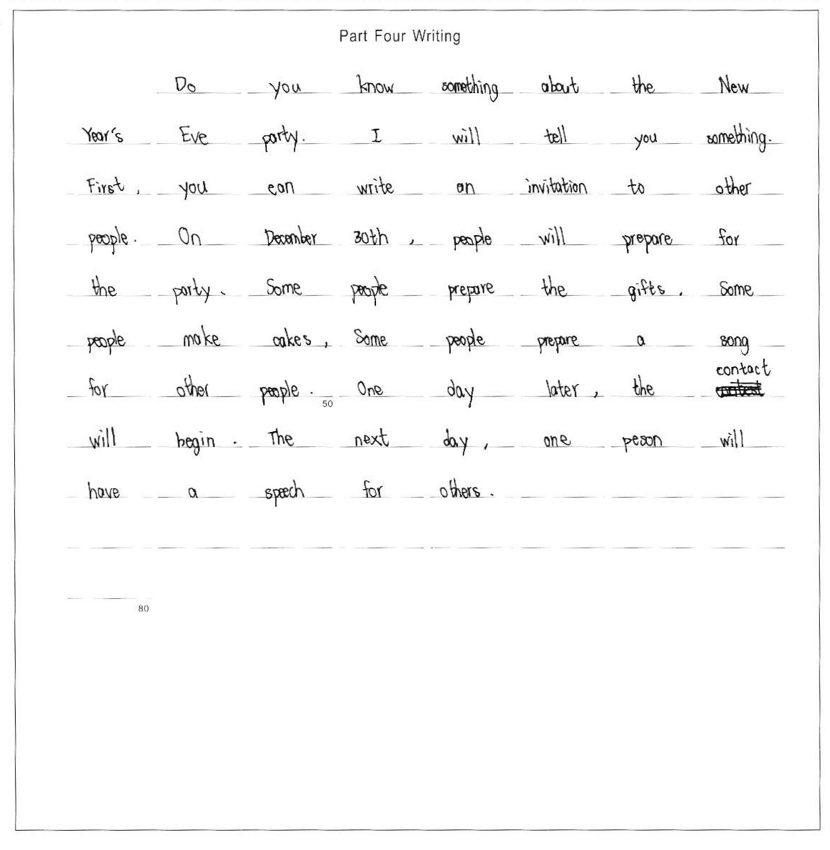 Part Four Writing
Do you know something about the New
Year's Eve party. I will tell you something.
First, you can write an invitation to other
people. On December 30th, people will prepare for
the party. Some people prepare the gifts. Some
people make cakes, Some people prepare a song
contact
for other people. One day later, the
50
will begin. The next day, one peson will
have a speech for others.
80